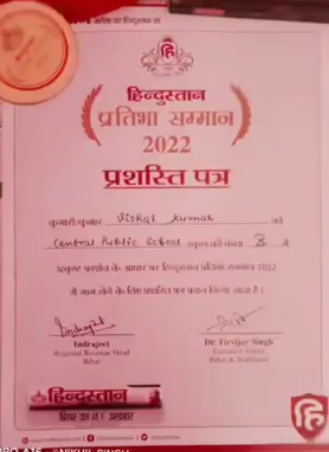 हिन्दुस्तान
प्रतिभा सम्मान
2022
प्रशस्ति पत्र
कुमारी/कुमार Vishal Kumar को
Central Public School स्कूल की कक्षा 8 में
उत्कृष्ट प्रदर्शन के आधार पर हिन्दुस्तान प्रतिभा सम्मान 2022
में भाग लेने के लिए प्रशस्ति पत्र प्रदान किया जाता है।
Indrajeet
Indrajeet
Regional Revenue Head
Bihar
Dr. Tirvijay Singh
Executive Editor
Bihar &
हिन्दुस्तान
बिहार का नं. 1 अखबार
NIKHIL SINGH